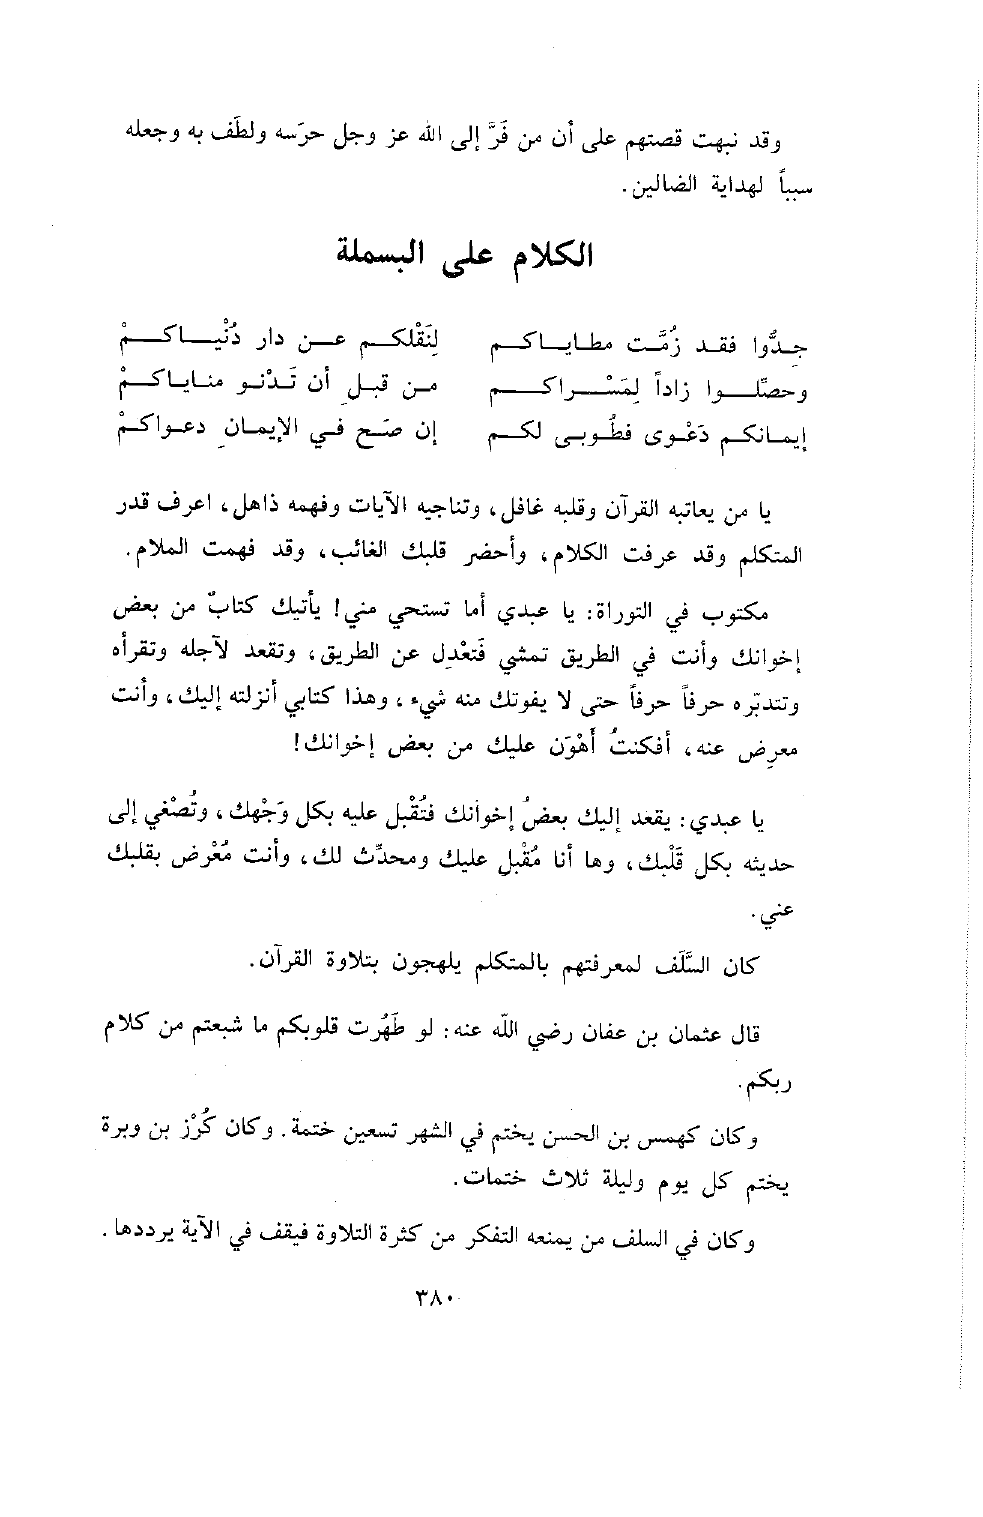 وقد نبهت قصتهم على أن من فَرَّ إلى الله عز وجل حرَسه ولطَف به وجعله
سبباً لهداية الضالين.
الكلام على البسملة
جـدُّوا فقـد زُمَّـت مطـايـاكـم لِنَقْلكـم عـن دار دُنْيـاكـمْ
وحصِّلـوا زاداً لِمَسْـراكـم مـن قبـلِ أن تَـدْنـو منـايـاكـمْ
إيمـانكـم دَعْـوى فطُـوبـى لكـم إن صَـح فـي الإيمـانِ دعـواكـمْ
يا من يعاتبه القرآن وقلبه غافل، وتناجيه الآيات وفهمه ذاهل، اعرف قدر
المتكلم وقد عرفت الكلام، وأحضر قلبك الغائب، وقد فهمت الملام.
مكتوب في التوراة: يا عبدي أما تستحي مني! يأتيك كتابٌ من بعض
إخوانك وأنت في الطريق تمشي فَتَعْدِل عن الطريق، وتقعد لآجله وتقرأه
وتتدبّره حرفاً حرفاً حتى لا يفوتك منه شيء، وهذا كتابي أنزلته إليك، وأنت
معرِض عنه، أفكنتُ أَهْوَن عليك من بعض إخوانك!
يا عبدي: يقعد إليك بعضُ إخوانك فتُقْبل عليه بكل وَجْهك، وتُصْغي إلى
حديثه بكل قَلْبك، وها أنا مُقْبل عليك ومحدِّث لك، وأنت مُعْرض بقلبك
عني.
كان السَّلَف لمعرفتهم بالمتكلم يلهجون بتلاوة القرآن.
قال عثمان بن عفان رضي الله عنه: لو طَهُرت قلوبكم ما شبعتم من كلام
ربكم.
وكان كهمس بن الحسن يختم في الشهر تسعين ختمة. وكان كُرْز بن وبرة
يختم كل يوم وليلة ثلاث ختمات.
وكان في السلف من يمنعه التفكر من كثرة التلاوة فيقف في الآية يرددها.
٣٨٠